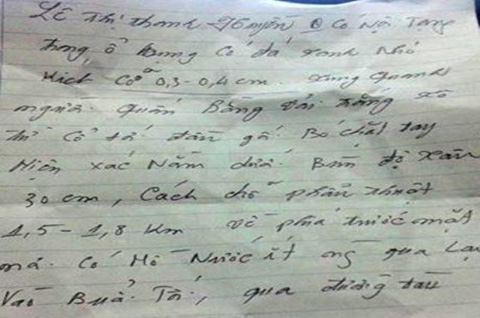 Lê Thị Thanh - Huyền Có Nội Tạng
trong ổ bụng Có đá xanh Nhỏ
Kích Cỡ 0,3 - 0,4 cm. xung quanh
người. Quấn Bằng vải trắng xô
thi Cổ tấ Bó chặt tay
Hiện xác Nằm dưới Bùn độ sâu
30 cm, Cách chỗ phẩu thuật
1,5 - 1,8 Km về phía trước mặt
mả. Có Hồ Nước ít ng qua lại
Vào Buổi Tối, qua đường tàu